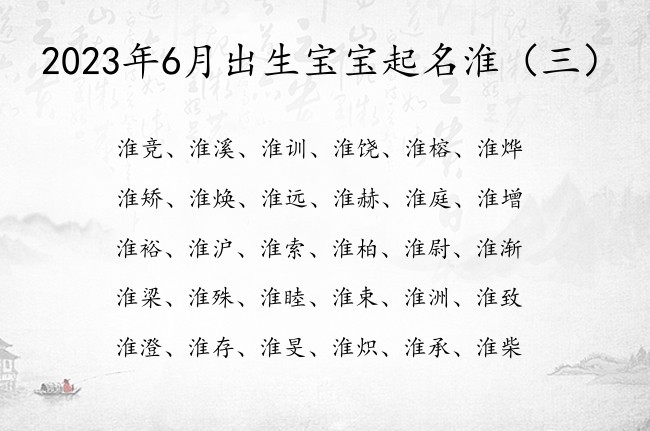 2023年6月出生宝宝起名淮（三）
淮竞、淮溪、淮训、淮饶、淮榕、淮烨
淮矫、淮焕、淮远、淮赫、淮庭、淮增
淮裕、淮沪、淮索、淮柏、淮尉、淮渐
淮梁、淮殊、淮睦、淮束、淮洲、淮致
淮澄、淮存、淮旻、淮炽、淮承、淮柴